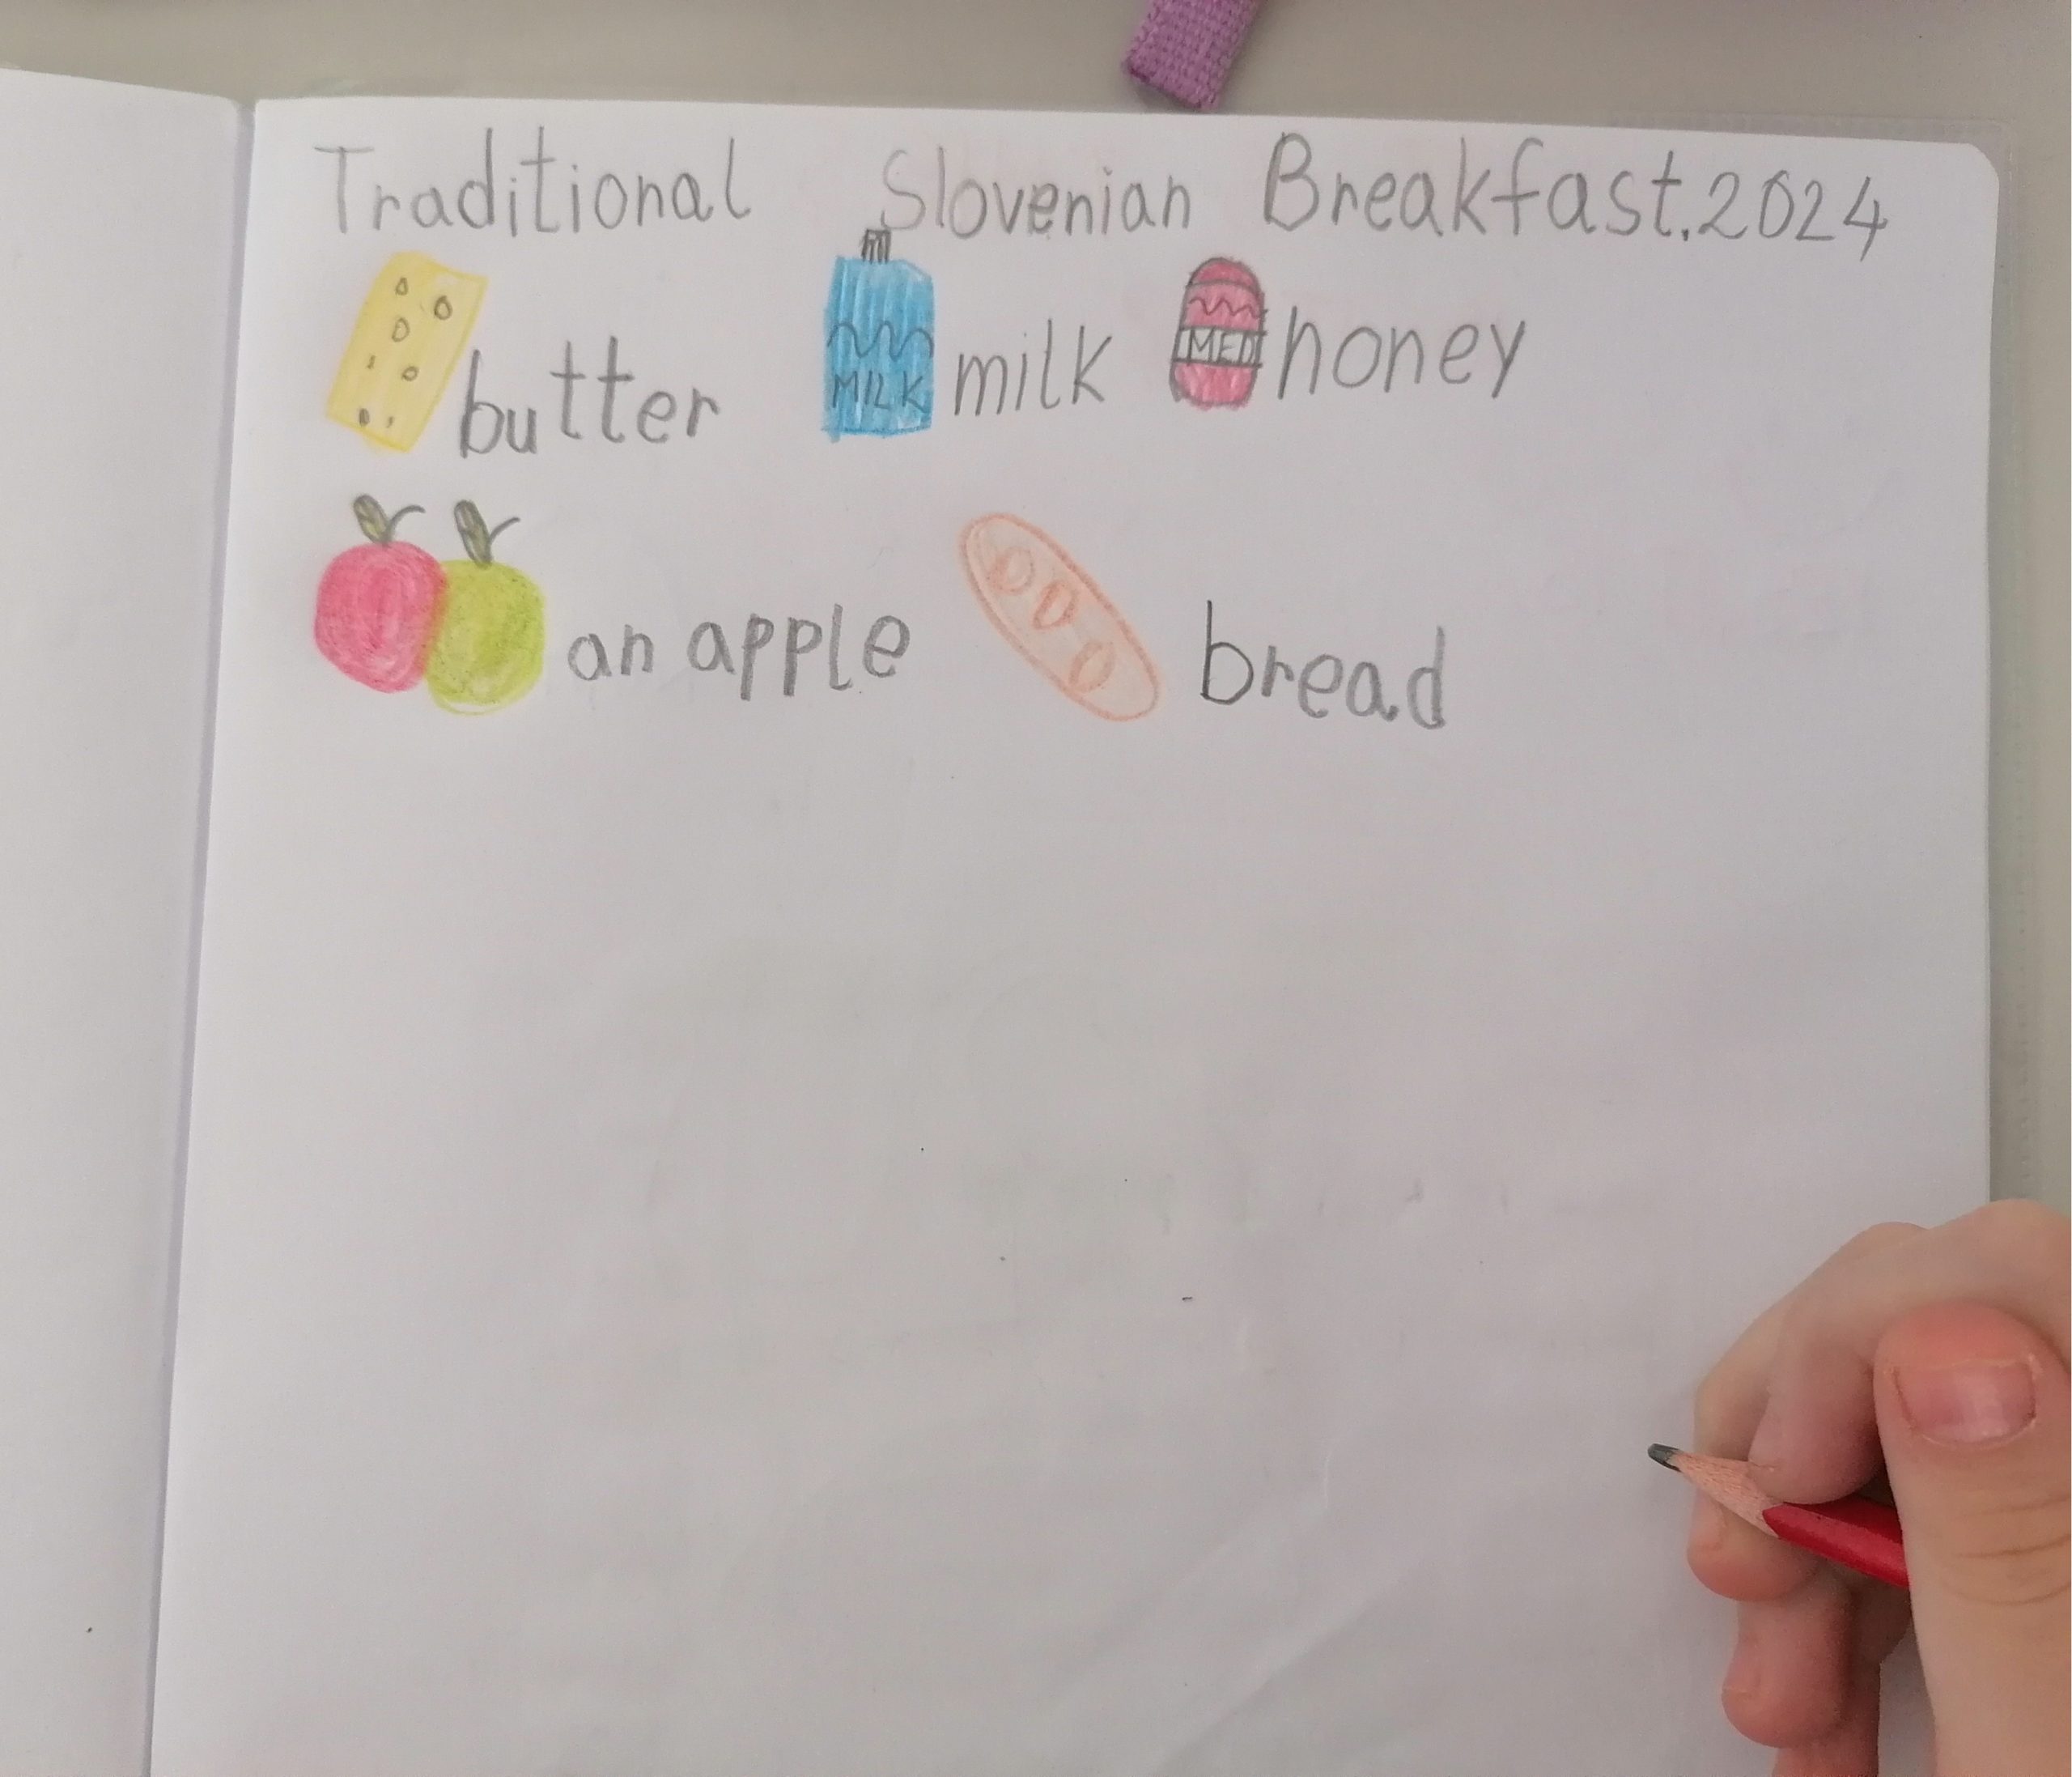 Traditional Slovenian Breakfast.2024
butter MILK milk MED honey
an apple bread